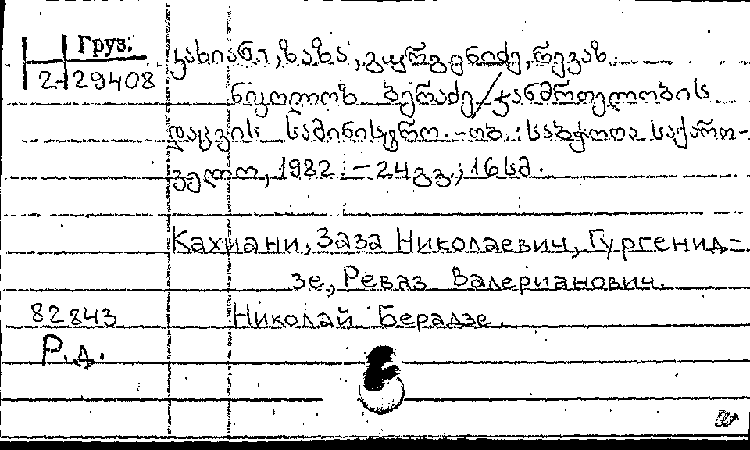 Груз.
2-29408
კახიანი, ზაზა, გურგენიძე, რევაზ.
ნიკოლოზ ბერაძე / ჯანმრთელობის
დაცვის სამინისტრო. – თბ. : საბჭოთა საქართ-
ველო, 1982. – 24 გვ.; 16 სმ.
Кахиани, Заза Николаевич, Гургенид-
зе, Реваз Валерианович.
82843 Николай Берадзе.
Р.д.